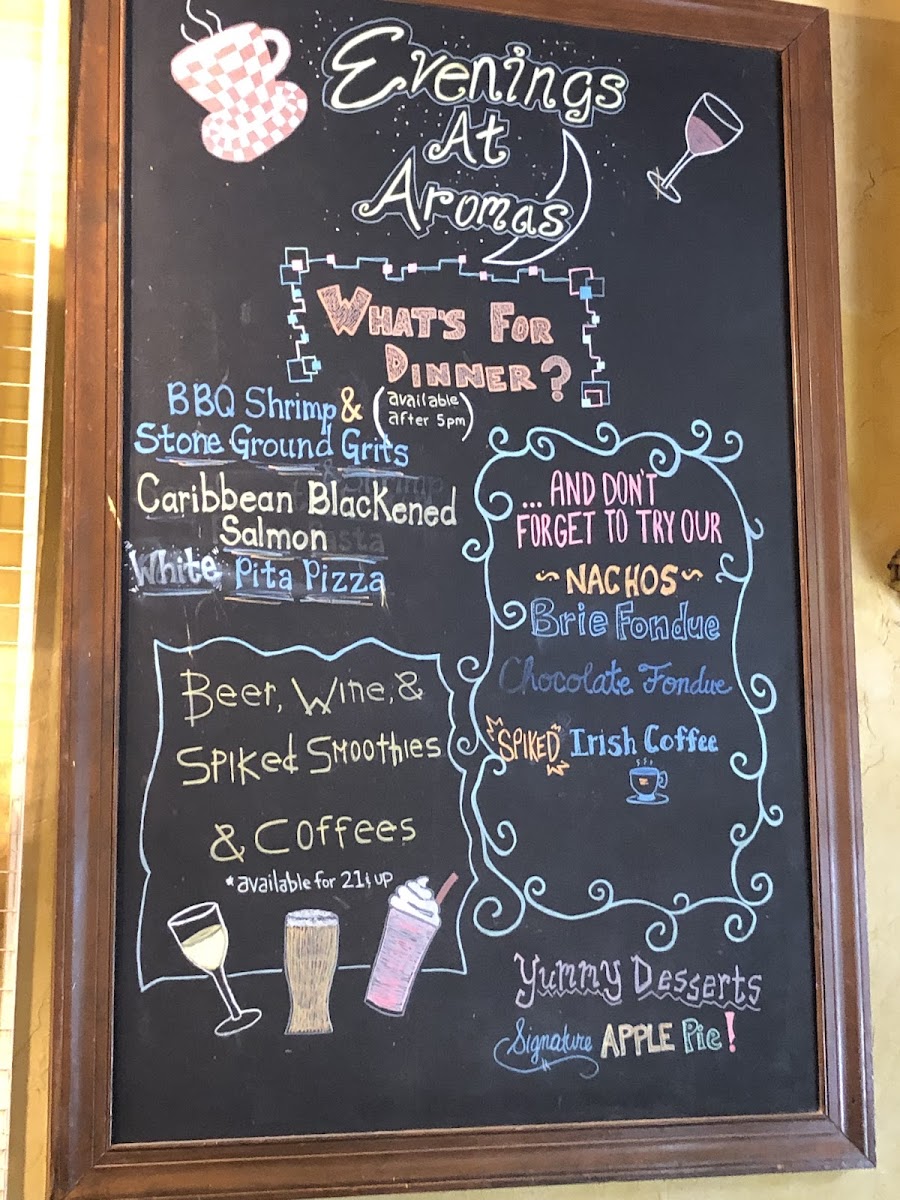 Evenings
At
Aromas
What's For
Dinner?
BBQ Shrimp &
(available
after 5pm)
Stone Ground Grits
Caribbean Blackened
Salmon
"White" Pita Pizza
... AND DON'T
FORGET TO TRY OUR
~ NACHOS ~
Brie Fondue
Chocolate Fondue
SPIKED Irish Coffee
Beer, Wine, &
Spiked Smoothies
& Coffees
*available for 21 & up
Yummy Desserts
Signature APPLE Pie!